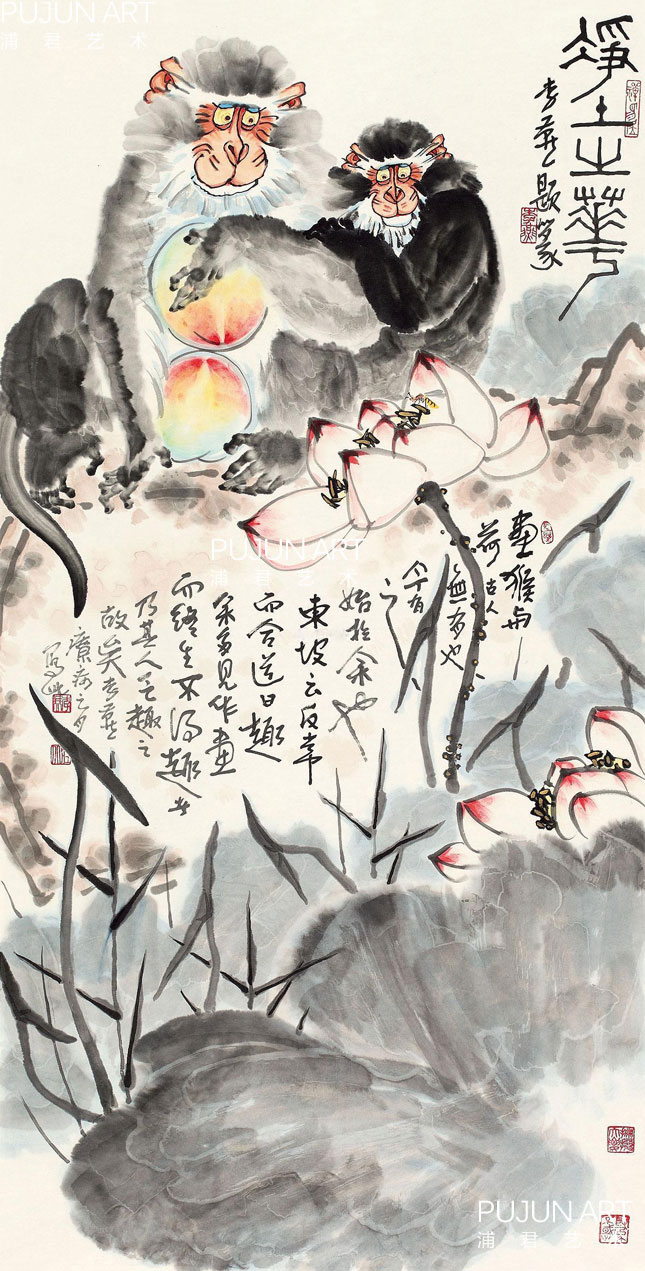 PUJUN ART
浦君艺术
淨土之華
李燕題篆
畫猴與
荷古人
無有也
今有
之
始於余也
東坡云反常
而合道曰趣
余多見作畫
而終生不得趣者
乃其人乏趣之
故矣李燕
療病之夕
寫此
PUJUN ART
浦君艺术
PUJUN ART
浦君艺术